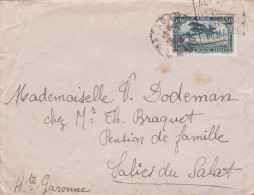 Mademoiselle V. Dodeman
chez Mr Th. Braquet
Pension de famille
Salies du Salat
Hte Garonne